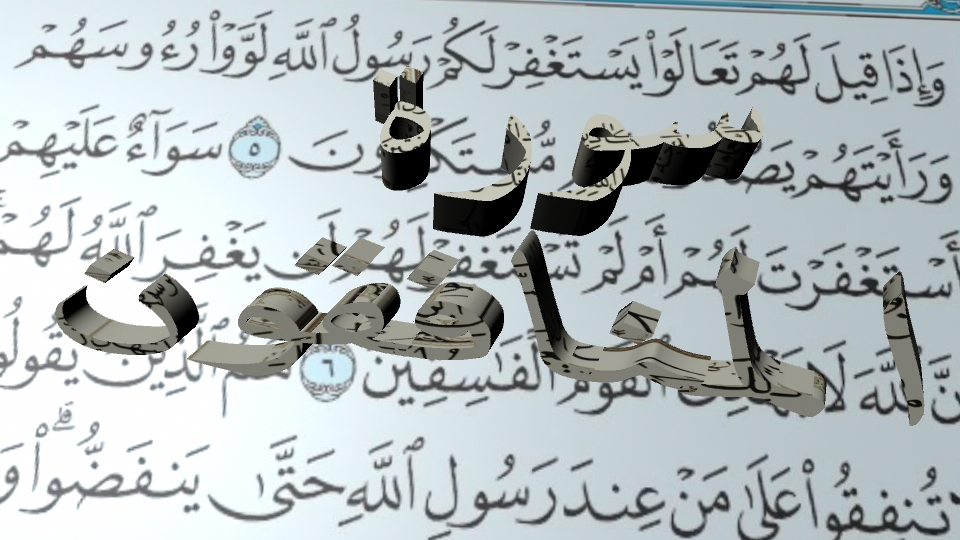 وَإِذَا قِيلَ لَهُمْ تَعَالَوْا۟ يَسْتَغْفِرْ لَكُمْ رَسُولُ ٱللَّهِ لَوَّوْا۟ رُءُوسَهُمْ
سورة
وَرَأَيْتَهُمْ مُّسْتَكْبِرُونَ ٥ سَوَآءٌ عَلَيْهِمْ
أَسْتَغْفَرْتَ لَهُمْ أَمْ لَمْ تَسْتَغْفِرْ لَهُمْ لَن يَغْفِرَ ٱللَّهُ لَهُمْ
المنافقون
ٱللَّهَ لَا ٱلْقَوْمَ ٱلْفَـٰسِقِينَ ٦ هُمُ ٱلَّذِينَ
تُنفِقُوا۟ عَلَىٰ مَنْ عِندَ رَسُولِ ٱللَّهِ حَتَّىٰ يَنفَضُّوا۟ ۗ